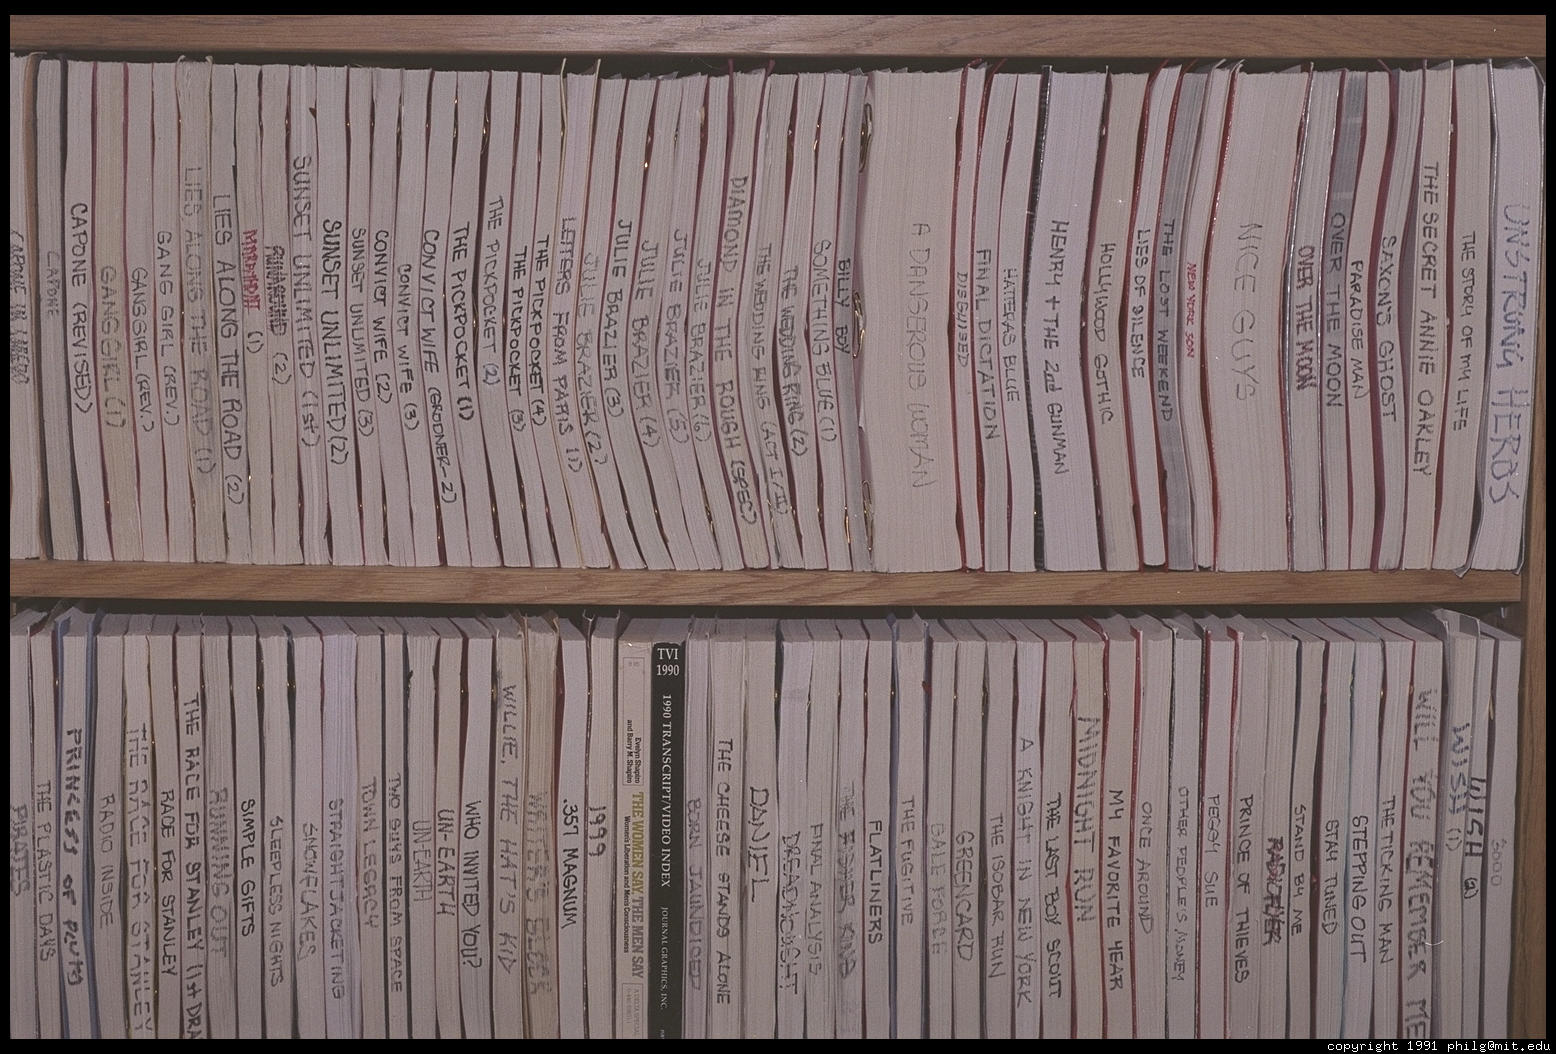 CAPONE
CAPONE (REVISED)
GANG GIRL (1)
GANG GIRL (REV.)
GANG GIRL (REV.)
LIES ALONG THE ROAD (1)
LIES ALONG THE ROAD (2)
(1)
(2)
SUNSET UNLIMITED (1st)
SUNSET UNLIMITED (2)
SUNSET UNLIMITED (3)
CONVICT WIFE (2)
CONVICT WIFE (3)
CONVICT WIFE (GRODNER-2)
THE PICKPOCKET (1)
THE PICKPOCKET (2)
THE PICKPOCKET (3)
THE PICKPOCKET (4)
LETTERS FROM PARIS (1)
JULIE BRAZIER (2)
JULIE BRAZIER (3)
JULIE BRAZIER (4)
JULIE BRAZIER (5)
JULIE BRAZIER (6)
DIAMOND IN THE ROUGH (SPEC)
THE WEDDING RING (ACT I/II)
THE WEDDING RING (2)
SOMETHING BLUE (1)
BILLY BOY
A DANGEROUS WOMAN
DISGUISED
FINAL DICTATION
HATTERAS BLUE
HENRY + THE 2nd GUNMAN
HOLLYWOOD GOTHIC
LIES OF SILENCE
THE LOST WEEKEND
NEW YORK SON
NICE GUYS
OVER THE MOON
OVER THE MOON
PARADISE MAN
SAXON'S GHOST
THE SECRET ANNIE OAKLEY
THE STORY OF MY LIFE
UNSTRUNG HEROS
PIRATES
THE PLASTIC DAYS
PRINCESS OF
RADIO INSIDE
THE RACE FOR STANLEY
RACE FOR STANLEY
THE RACE FOR STANLEY (1st DRA
RUNNING OUT
SIMPLE GIFTS
SLEEPLESS NIGHTS
SNOWFLAKES
STRAIGHTJACKETING
TOWN LEGACY
TWO GUYS FROM SPACE
UN-EARTH
UN-EARTH
WHO INVITED YOU?
WILLIE, THE HAT'S KID
WRITER'S BLOCK
.357 MAGNUM
1999
Evelyn Shapiro
and Barry M. Shapiro
THE WOMEN SAY THE MEN SAY
Women's Liberation and Men's Consciousness
TVI
1990
1990 TRANSCRIPT/VIDEO INDEX
JOURNAL GRAPHICS, INC.
BORN JAUNDICED
THE CHEESE STANDS ALONE
DANIEL
DREADNOUGHT
FINAL ANALYSIS
THE FISHER KING
FLATLINERS
THE FUGITIVE
GALE FORCE
GREENCARD
THE ISOBAR RUN
A KNIGHT IN NEW YORK
THE LAST BOY SCOUT
MIDNIGHT RUN
MY FAVORITE YEAR
ONCE AROUND
OTHER PEOPLE'S MONEY
PEGGY SUE
PRINCE OF THIEVES
RADIO FLYER
STAND BY ME
STAY TUNED
STEPPING OUT
THE TICKING MAN
WILL YOU REMEMBER ME
WISH (1)
WISH (2)
3000
copyright 1991 philg@mit.edu